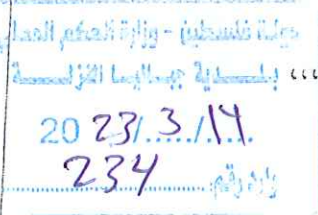 دولة فلسطين - وزارة الحكم المحلي
بلدية جباليا النزلة
2023/3/14
وارد رقم 234